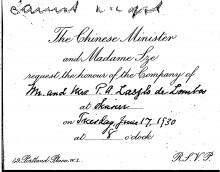 The Chinese Minister
and Madame Sze
request the honour of the Company of
Mr. and Mrs P. A. Laszlo de Lombos
at dinner
on Tuesday June 17, 1930
at 8 o'clock
49, Portland Place, W.1.
R.S.V.P.